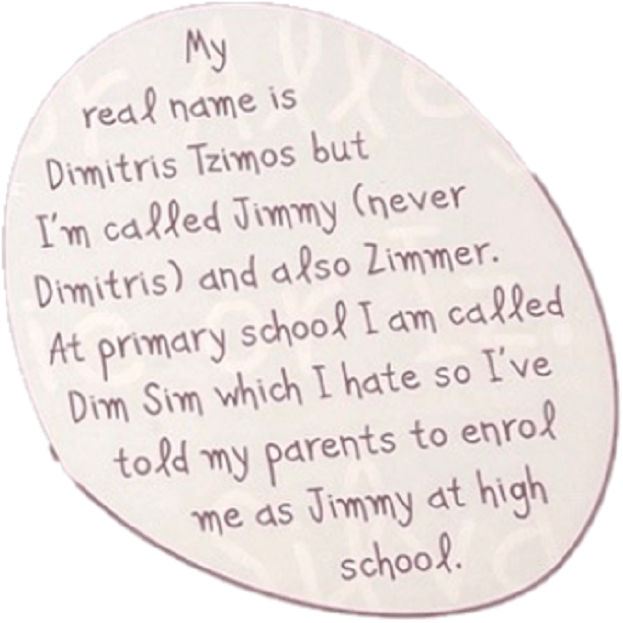 My
real name is
Dimitris Tzimos but
I'm called Jimmy (never
Dimitris) and also Zimmer.
At primary school I am called
Dim Sim which I hate so I've
told my parents to enrol
me as Jimmy at high
school.